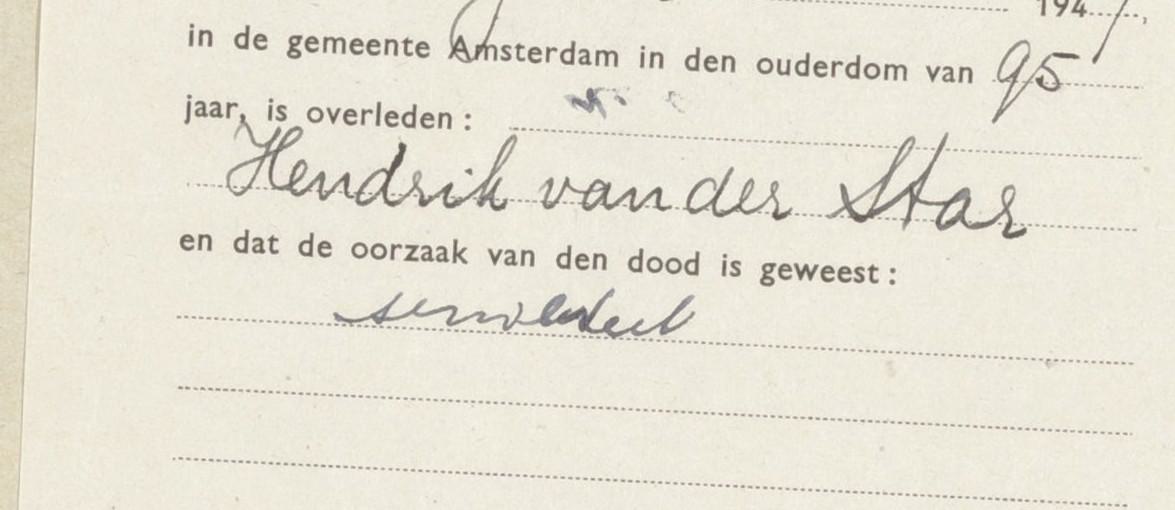 194
in de gemeente Amsterdam in den ouderdom van 95
jaar, is overleden :
Hendrik van der Star
en dat de oorzaak van den dood is geweest :